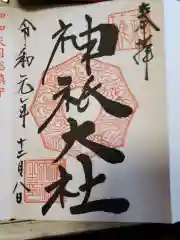 奉拝
神祇大社
令和元年十二月八日